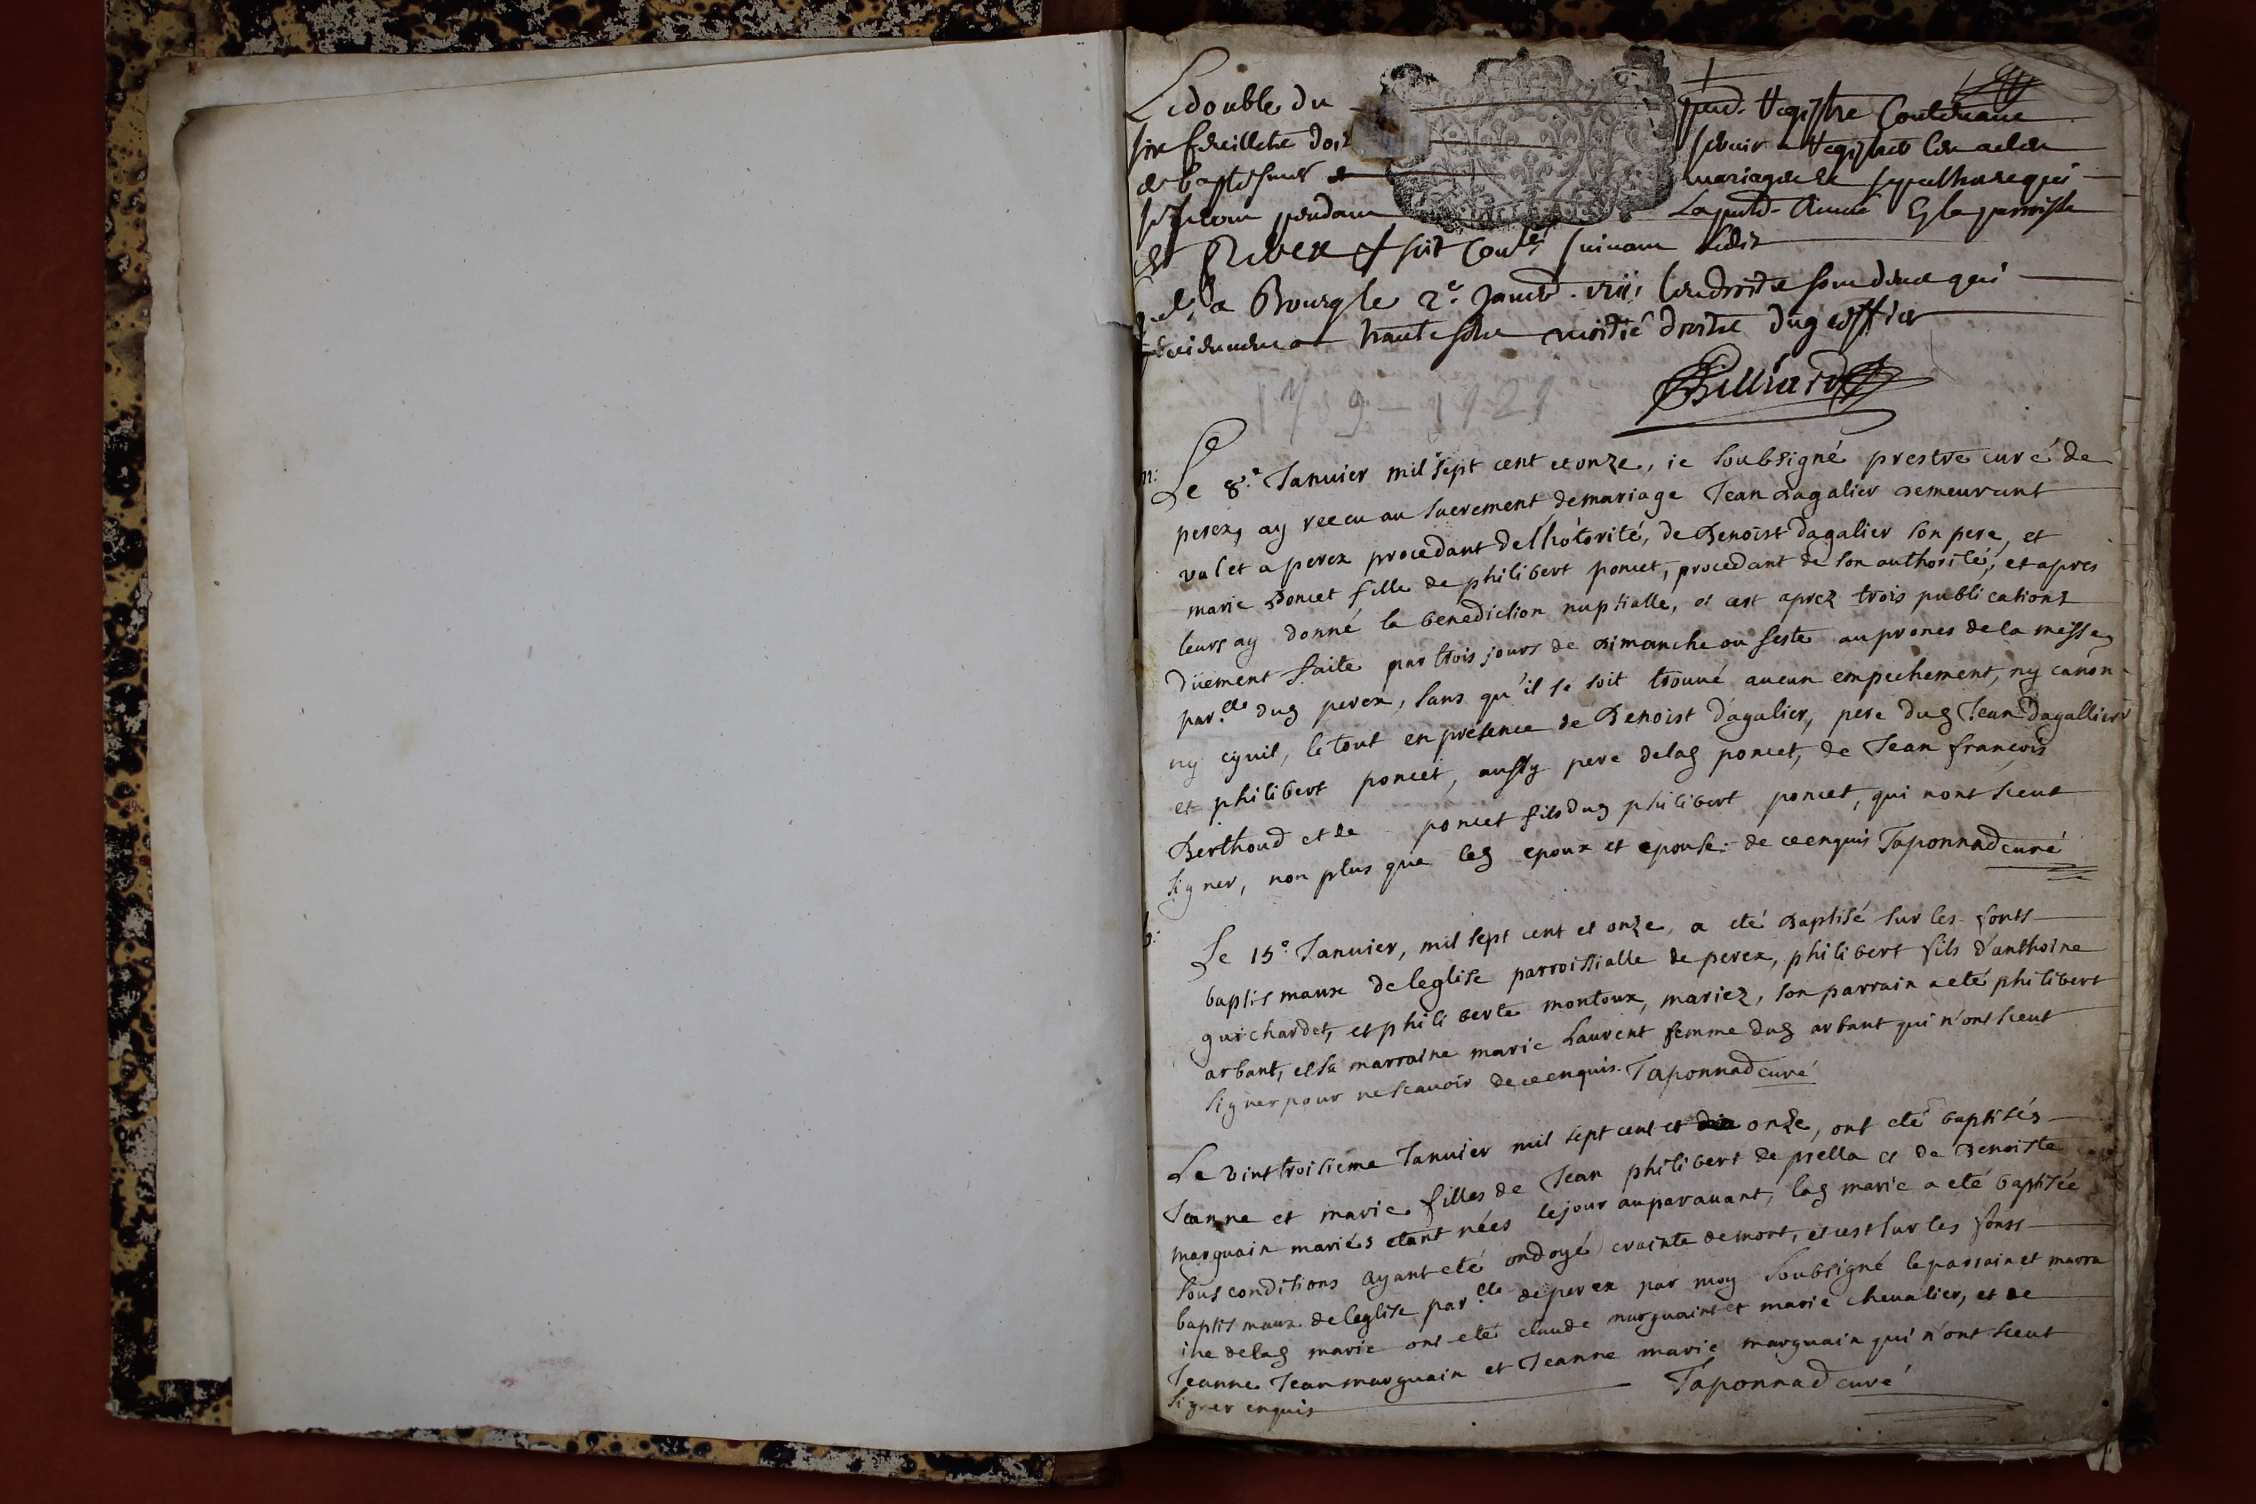 Le double du present Registre Contenant
six feuillets doit servir a Registrer les actes
de baptesmes mariages et sepulthure qui
se feront pendant La presente Année En la parroisse
de Perex suivant
a Bourg le 2e Janvr les droits sont deus qui
moitié droits dud officier
Billiard
1719 - 1721
m:
Le 8e Januier mil sept cent et onze, ie soubsigné prestre curé de
perex, ay receu au sacrement de mariage Jean dagalier demeurant
valet a perex procedant de lhótorité, de Benoist dagalier son pere, et
marie poncet fille de philibert poncet, procedant de son authorité, et apres
leurs ay donné la benediction nuptialle, et cest aprez trois publications
düement faite par trois jours de dimanche ou feste au prones de la messe
par.lle dud perex, sans qu'il se soit trouué aucun empechement, ny canon
ny cyuil, le tout en présence de Benoist dagalier, pere dud Jean Dagallier
et philibert poncet, aussy pere delad poncet, de Jean françois
Berthoud et de poncet fils dud philibert poncet, qui nont sceut
signer, non plus que les epoux et epouse de ce enquis Taponnad curé
b:
Le 15e Januier, mil sept cent et onze, a eté Baptisé sur les fonts
baptismaux de leglise parroissialle de perex, philibert fils d'anthoine
guichardet, et philiberte montoux, mariez, son parrain a eté philibert
arbant, et sa marraine marie Laurent femme dud arbant qui n'ont sceut
signer pour ne scauoir de ce enquis. Taponnad curé
Le vint troisiéme Januier mil sept cent et onze, ont eté baptisés
Jeanne et marie filles de Jean philibert de prella et de Benoiste
marguain mariés etant nées le jour auparauant, lad marie a eté baptisée
sous conditions ayant eté ondoyé crainte de mort, et cest sur les fonts
baptismaux de leglise par.lle de perex par moy soubsigné le parrain et marra
ine delad marie ont eté claude marguain et marie cheualier, et de
Jeanne Jean marguain et Jeanne marie marguain qui n'ont sceut
signer enquis Taponnad curé